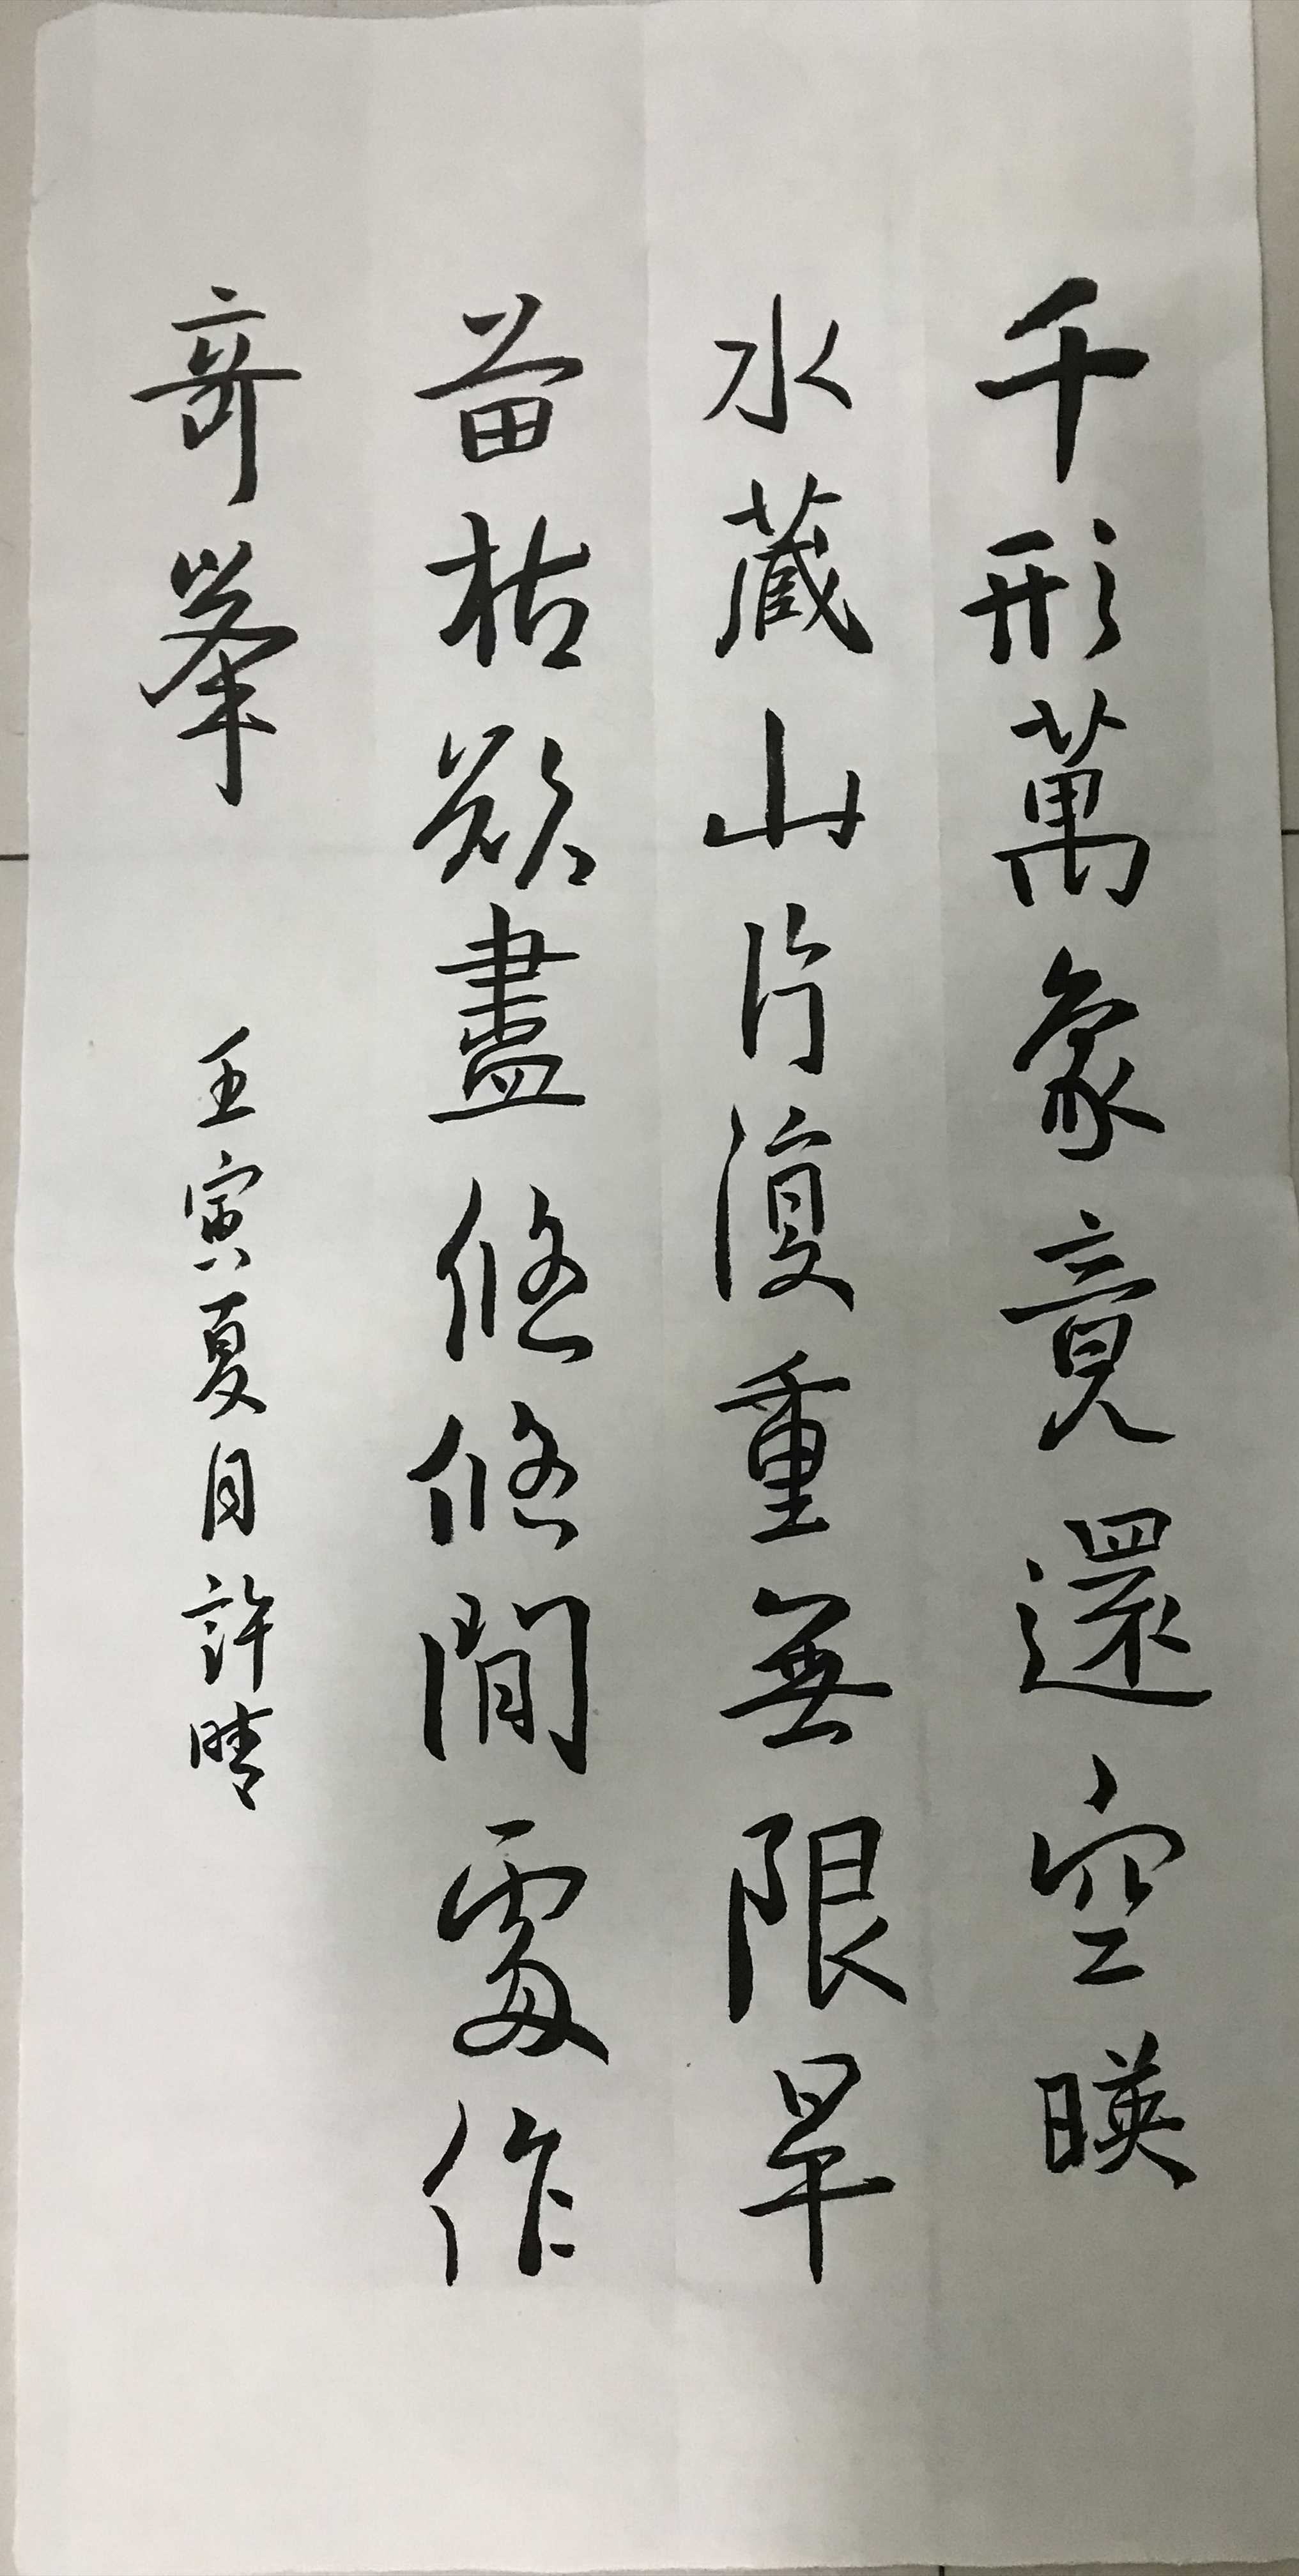 千形萬象竟還空暎
水藏山片復重無限旱
苗枯欲盡悠悠閒處作
奇峯
壬寅夏月許晴